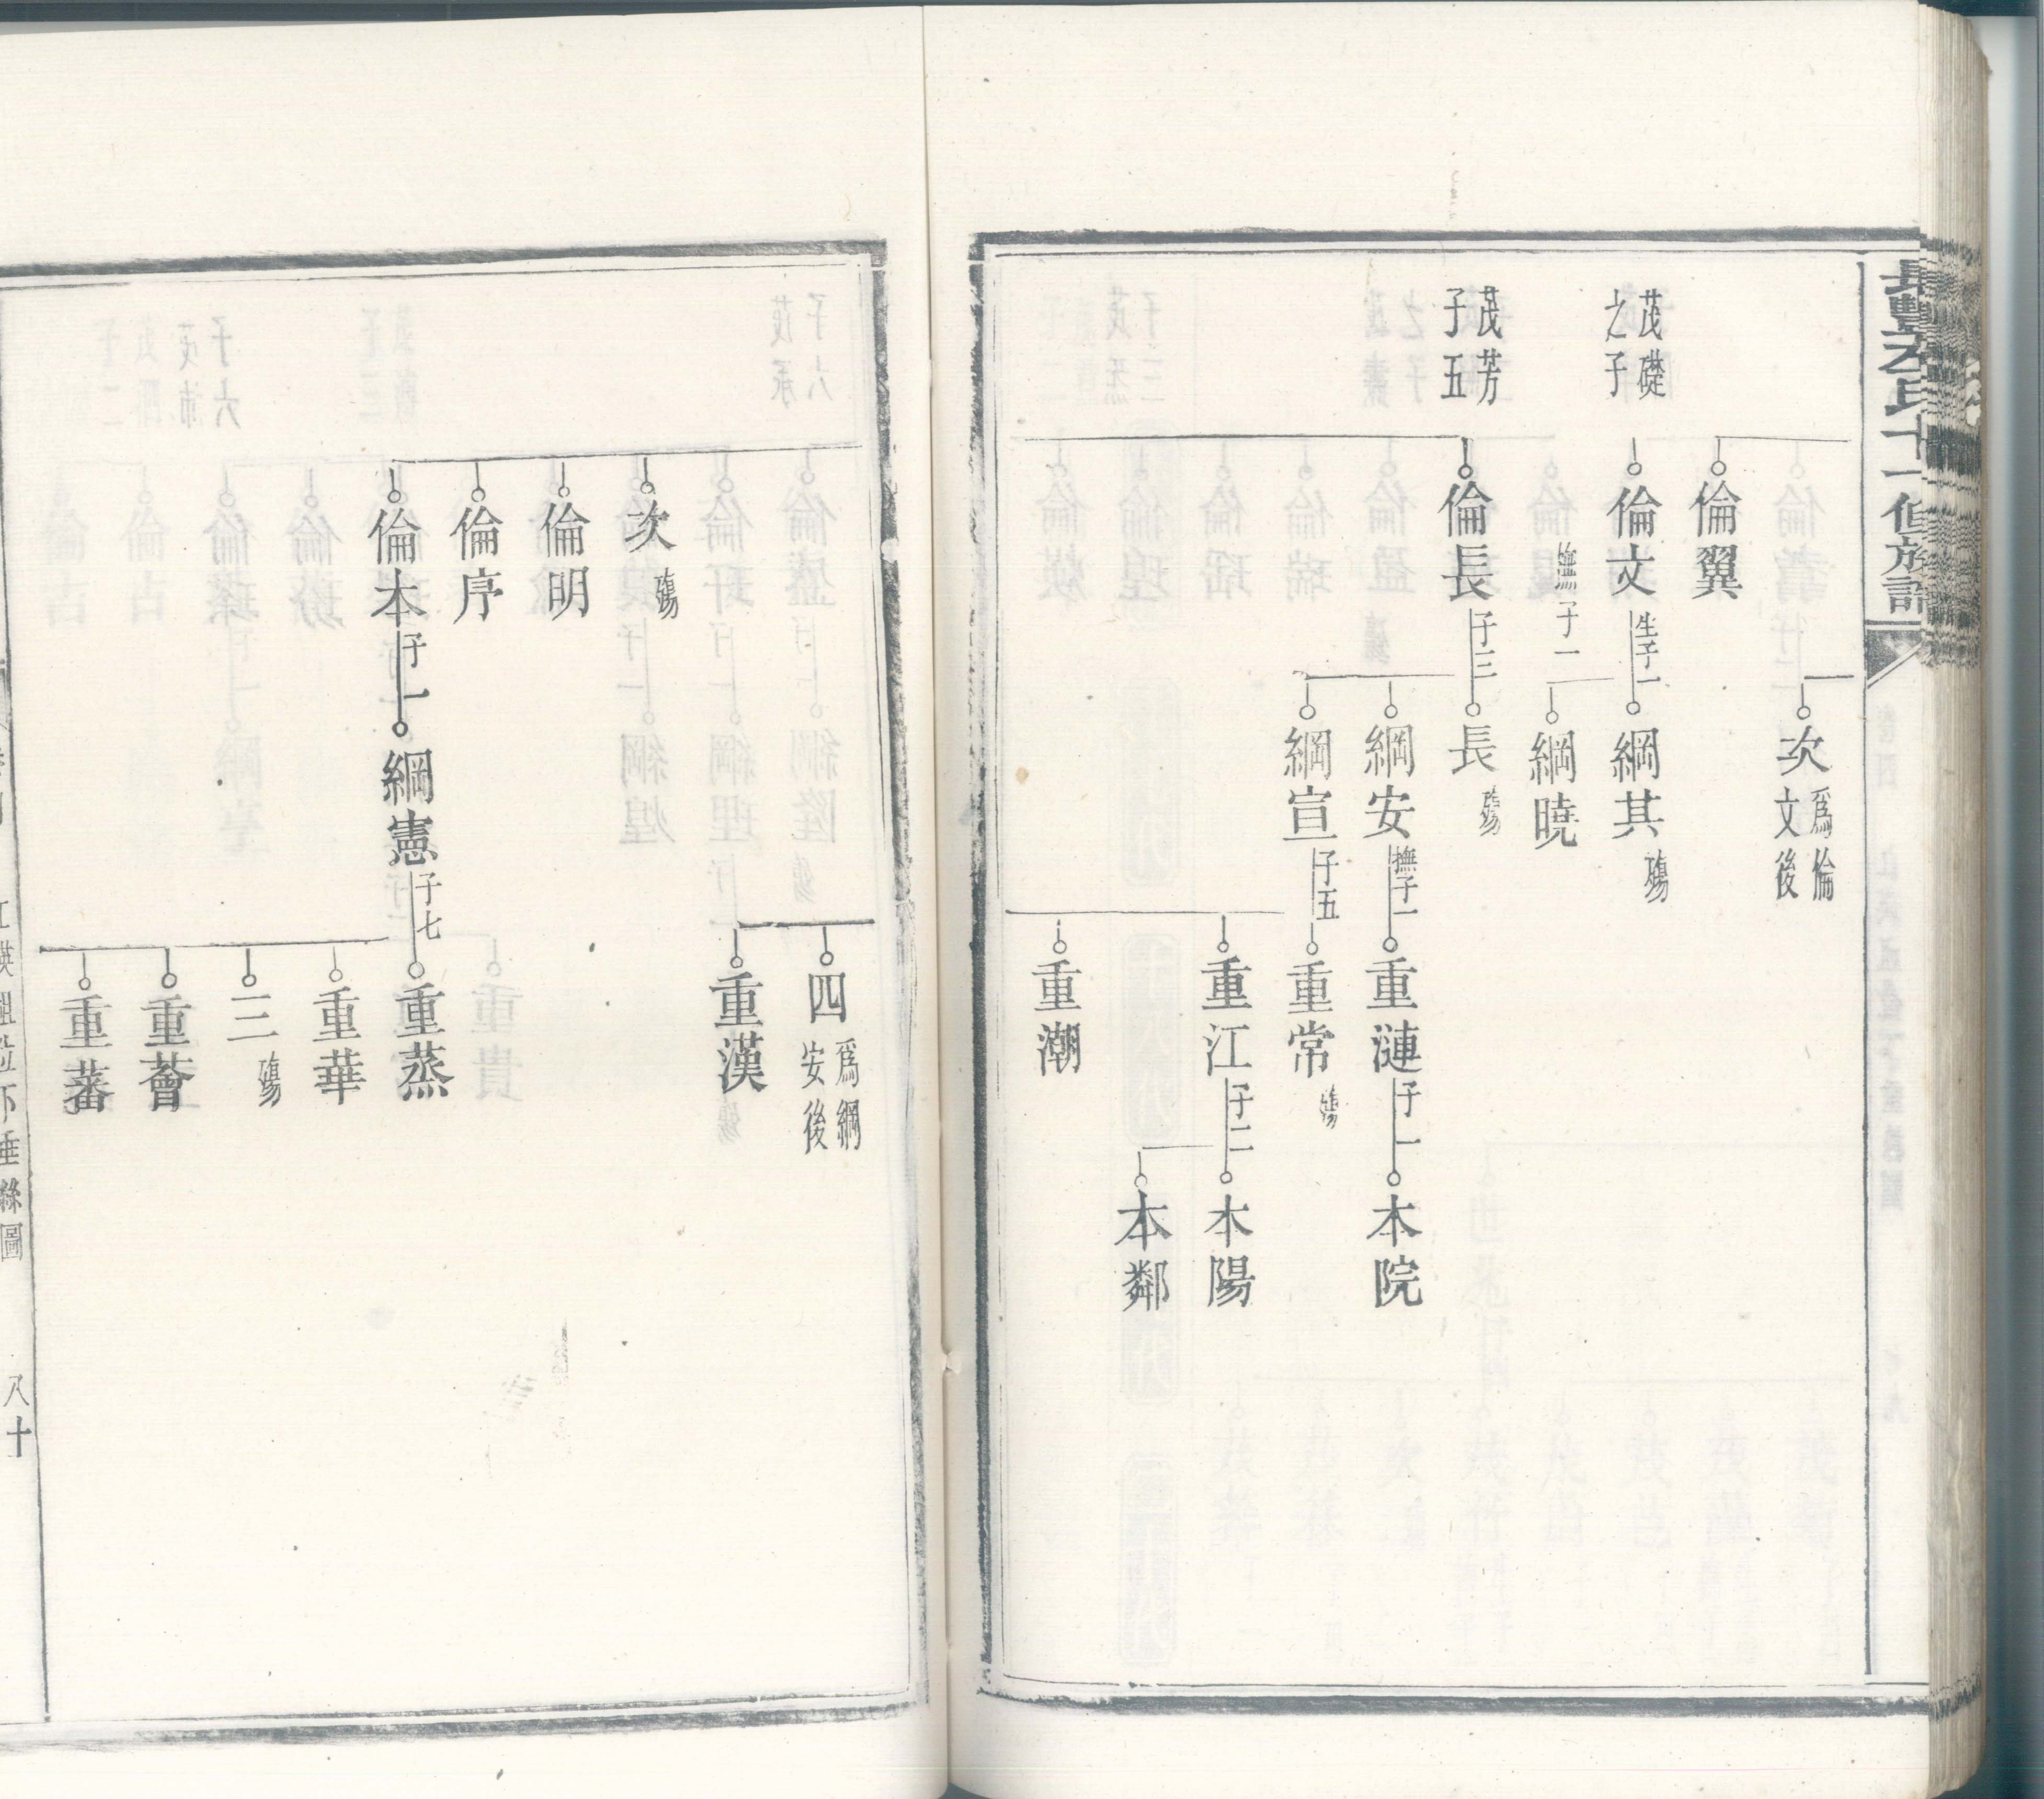 長豐左氏十一修族譜
倫翼
次 爲倫文後
茂礎之子
倫文 生子一
撫子一
綱其 殤
綱曉
茂芳子五
倫長 子三
長 殤
綱安 撫子一
綱宣 子五
重漣 子一
重常 殤
重江 子二
重潮
本院
本陽
本鄰
四 爲綱安後
重漢
次 殤
倫明
倫序
倫本 子一
綱憲 子七
重蒸
重華
三 殤
重薈
重蕃
垂絲圖
八十